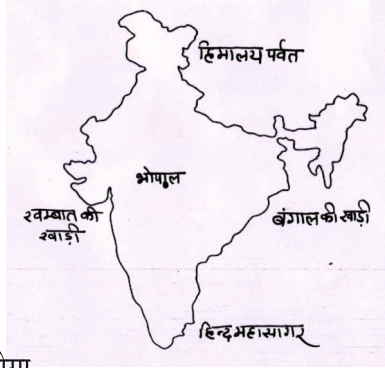 हिमालय पर्वत
भोपाल
खम्बात की
खाड़ी
बंगाल की खाड़ी
हिन्द महासागर